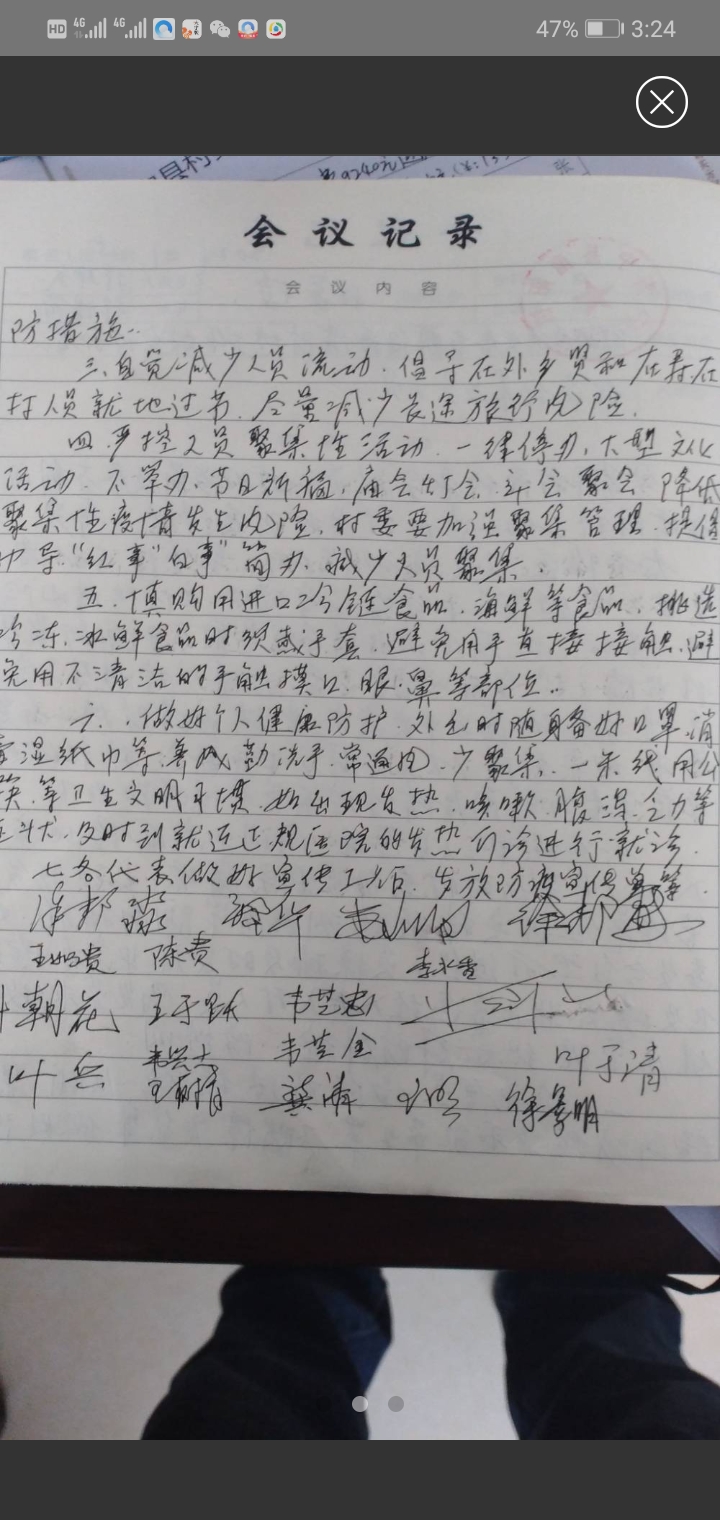 HD 4G 4G 47% 3:24
会议记录
会议内容
防措施..
三、自觉减少人员流动.倡导在外乡贤和在寿在
村人员就地过节.尽量减少长途旅行风险.
四.严控人员聚集性活动.一律停办.大型文化
活动.不举办.节日祈福.庙会灯会.年会聚会降低
聚集性疫情发生风险.村委要加强聚集管理.提倡
导."红事""白事"简办.减少人员聚集.
五.慎购用进口冷链食品.海鲜等食品.挑选
冷冻.冰鲜食品时须戴手套.避免用手直接接触.避
免用不清洁的手触摸口.眼.鼻等部位..
六..做好个人健康防护.外出时随身备好口罩.消
毒湿纸巾等.养成勤洗手.常通风.少聚集.一米线用公
筷.等卫生文明习惯.如出现发热.咳嗽.腹泻.乏力等
症状.及时到就近正规医院的发热门诊进行就诊.
七各代表做好宣传工作.发放防疫宣传单等.
陈贵
李永香
朝花 王于跃 韦芝忠
叶兵 韦芝全 叶于清
龚涛 徐景明